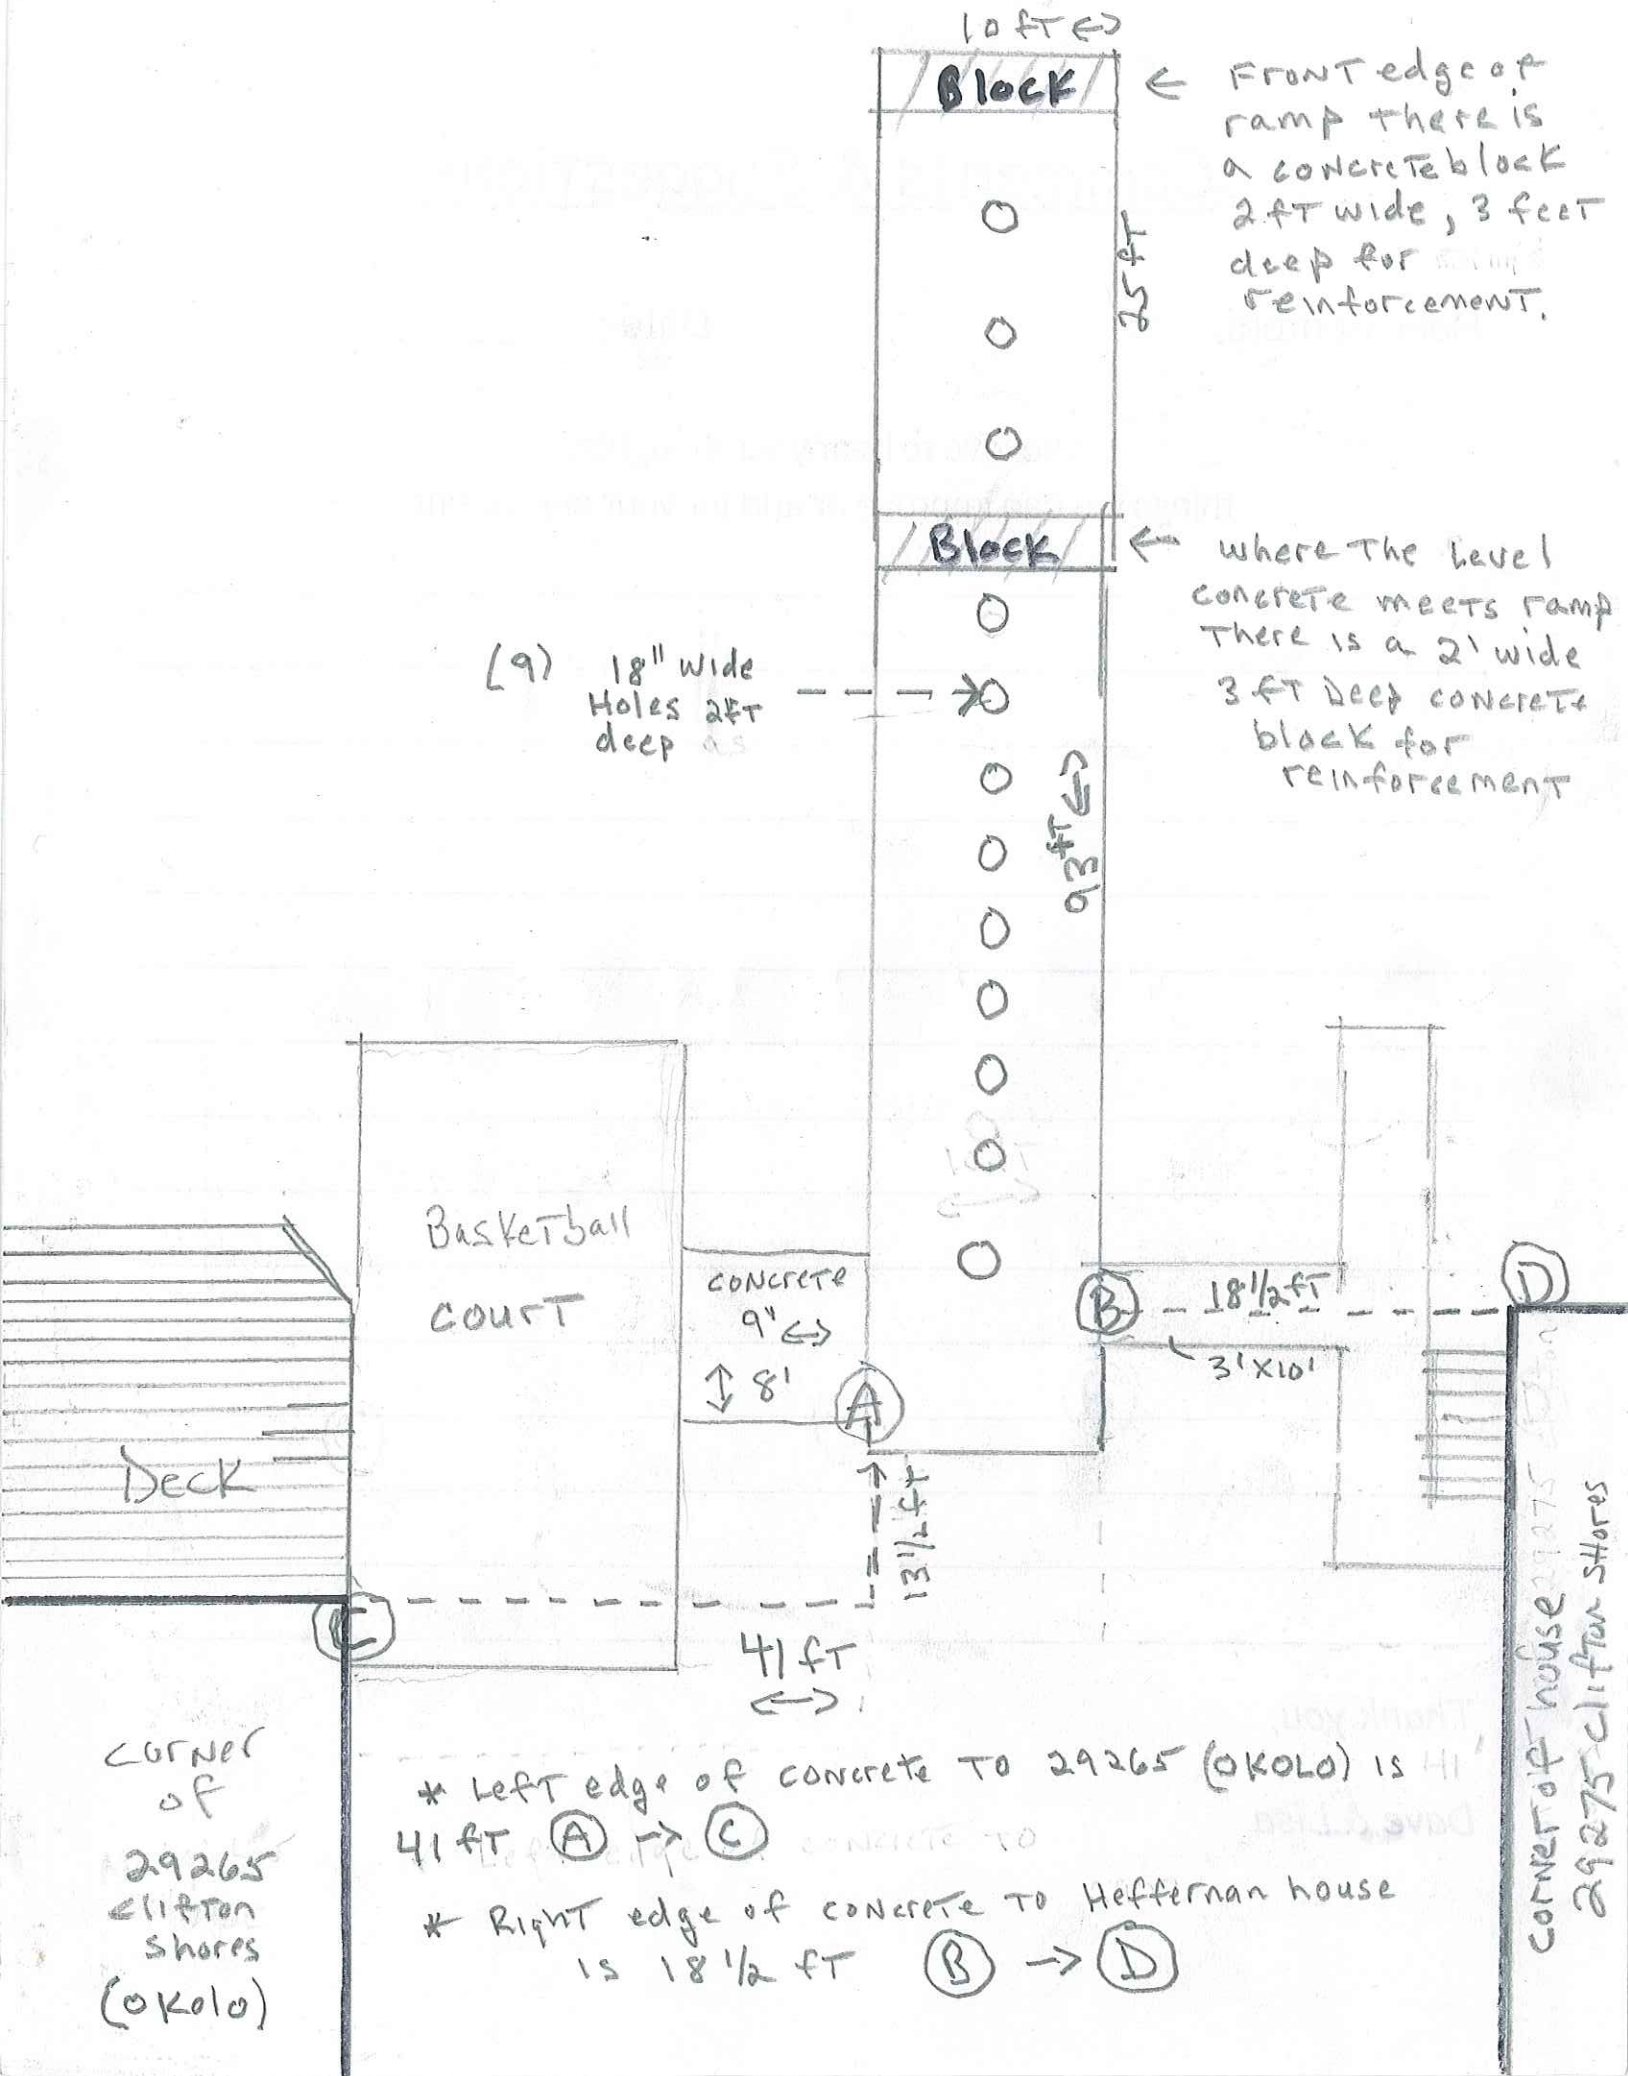 10 fT <->
Block
← FronT edge of
ramp there is
a concreTe block
2 fT wide, 3 feeT
deep for
reinforcemenT.
25 fT
Block
← where The Level
concreTe meeTs ramp
There is a 2' wide
3 fT Deep concreTe
block for
reinforcemenT
(9) 18" wide
Holes 2fT
deep
93 fT <->
BaskeTball
courT
concreTe
9" <->
8'
A
B
18 1/2 fT
3'x10'
D
Deck
13 1/2 fT
C
41 fT
<->
corner
of
29265
clifTon
shores
(OKolo)
* LefT edge of concrete To 29265 (OKOLO) is
41 fT A → C
* RighT edge of concreTe To Heffernan house
is 18 1/2 fT B → D
corner of house
29275 clifTon SHores